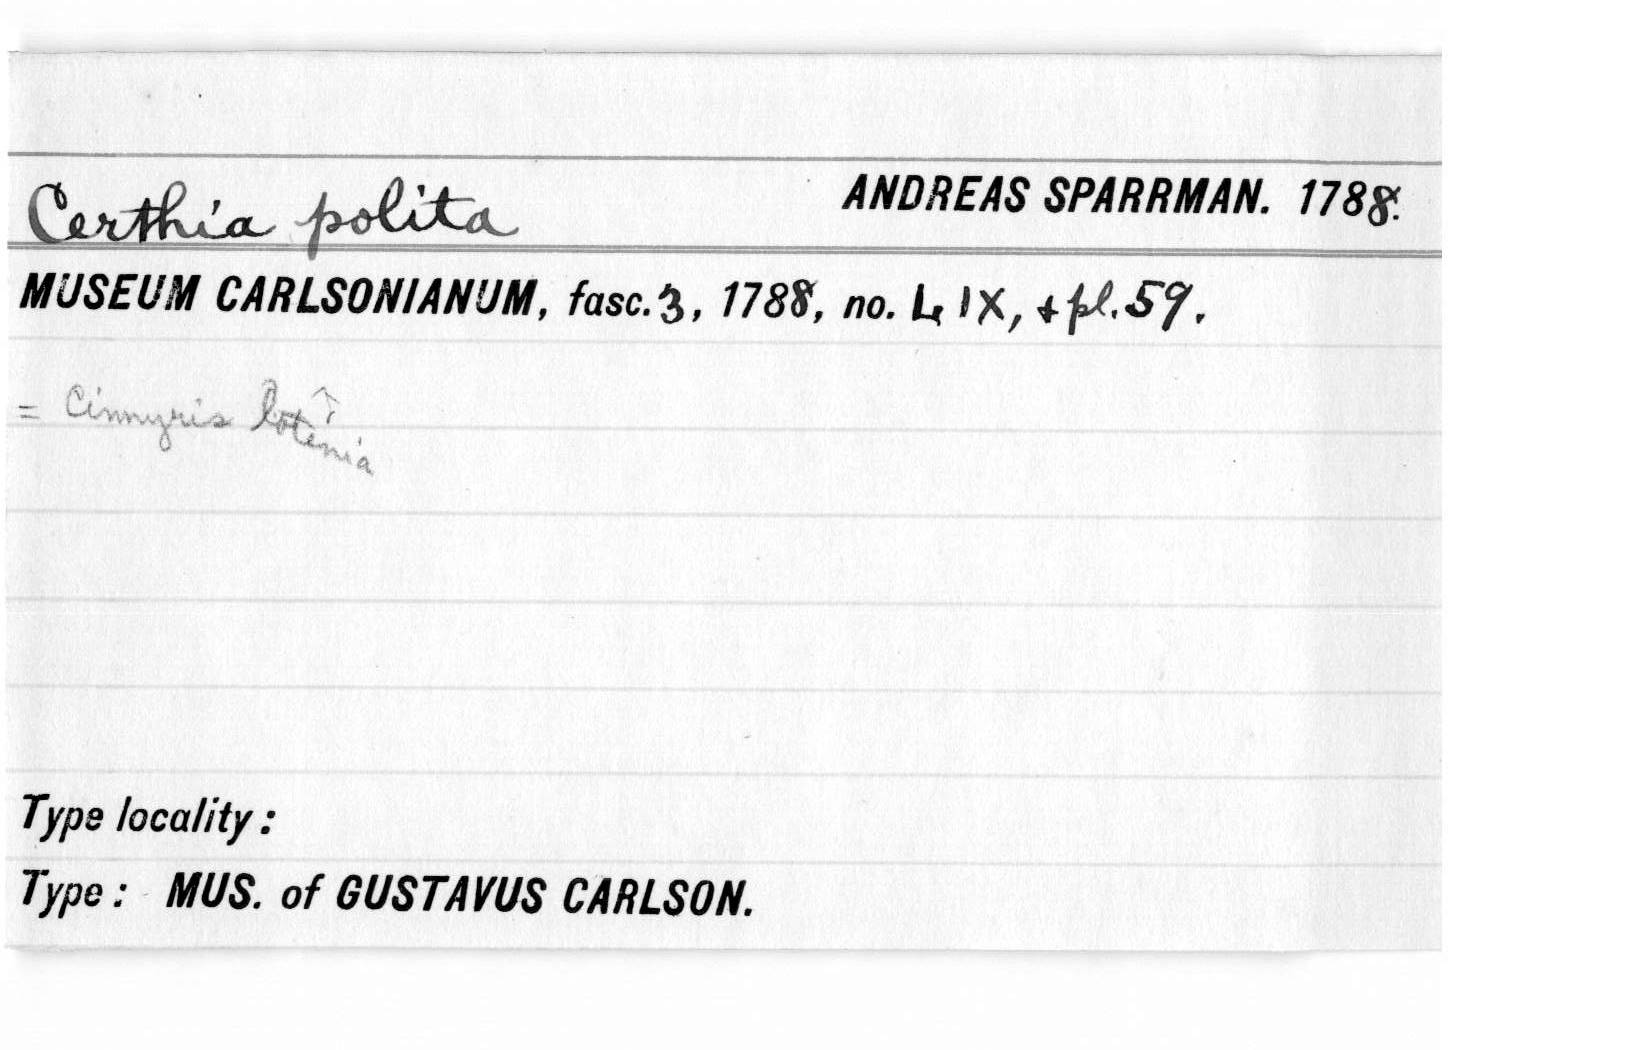 Certhia polita ANDREAS SPARRMAN. 1788.
MUSEUM CARLSONIANUM, fasc. 3, 1788, no. LIX, + pl. 59.
= Cinnyris lotenia
Type locality:
Type: MUS. of GUSTAVUS CARLSON.